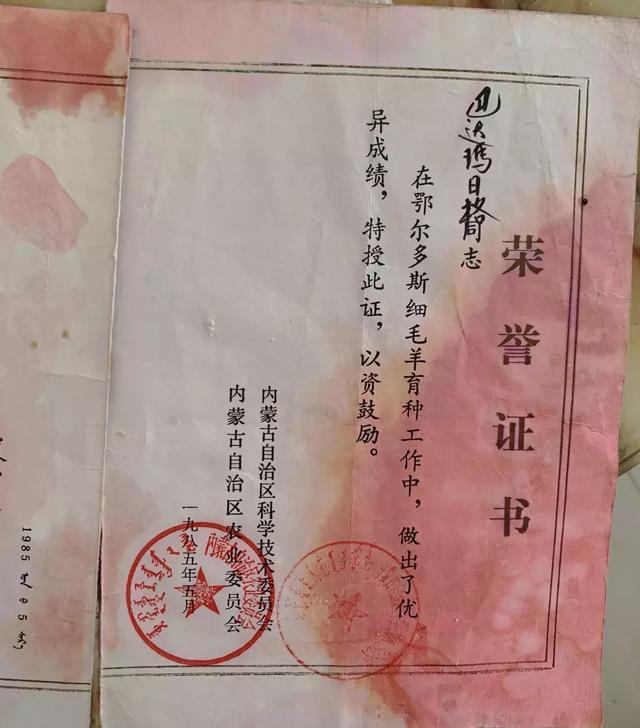 荣誉证书
巴达玛日格同志
在鄂尔多斯细毛羊育种工作中，做出了优
异成绩，特授此证，以资鼓励。
内蒙古自治区科学技术委员会
内蒙古自治区农业委员会
一九八五年五月
1985 ᠣᠨ ᠤ 5 ᠰᠠᠷ᠎ᠠ